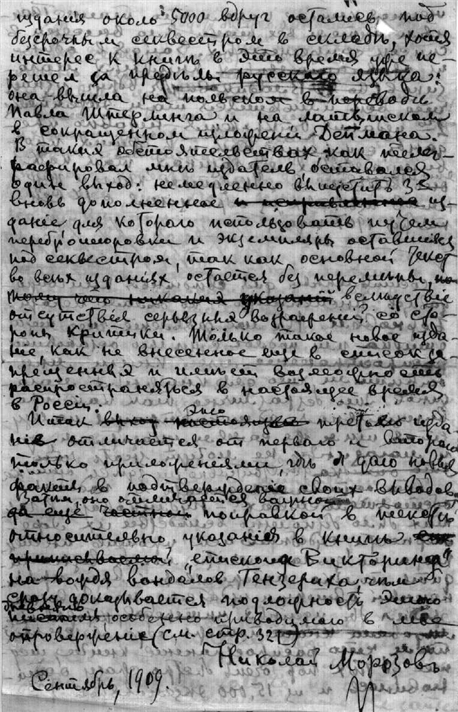 издания около 5000 вдруг остались под
безсрочным секвестром в складѣ, хотя
интерес к книгѣ в это время уже пе-
решел за предѣлы русскаго языка:
она вышла на польском в переводѣ
Павла и на латышском
в сокращенном изложении Детмана.
В таких обстоятельствах как телег-
рафировал мнѣ издатель оставался
один выход: немедленно выпустить 3е
вновь дополненное и исправленное из-
дание для котораго использовать путем
переброшюровки и экземпляры оставшиеся
под секвестром, так как основной текст
во всѣх изданиях остается без перемѣны, по-
тому что никаких указаний вслѣдствие
отсутствия серьезных возражений со сто-
роны критики. Только такое новое изда-
ние, как не внесенное еще в список за-
прещенных и имѣет возможность
распространяться в настоящее время
в России.
Итак это третье изда-
ние отличается от перваго и второго
только приложениями гдѣ я даю новые
факты в подтверждение своих выводов
Затѣм оно отличается важной
да еще частной поправкой в текстѣ
относительно указания в книгѣ
епископа Викторина
на вождя вандалов Гензериха чѣм
сразу доказывается подложность этого
особенно приводимаго в мое
опровержение (см. стр. 321)
Николай Морозовъ
Сентябрь, 1909.